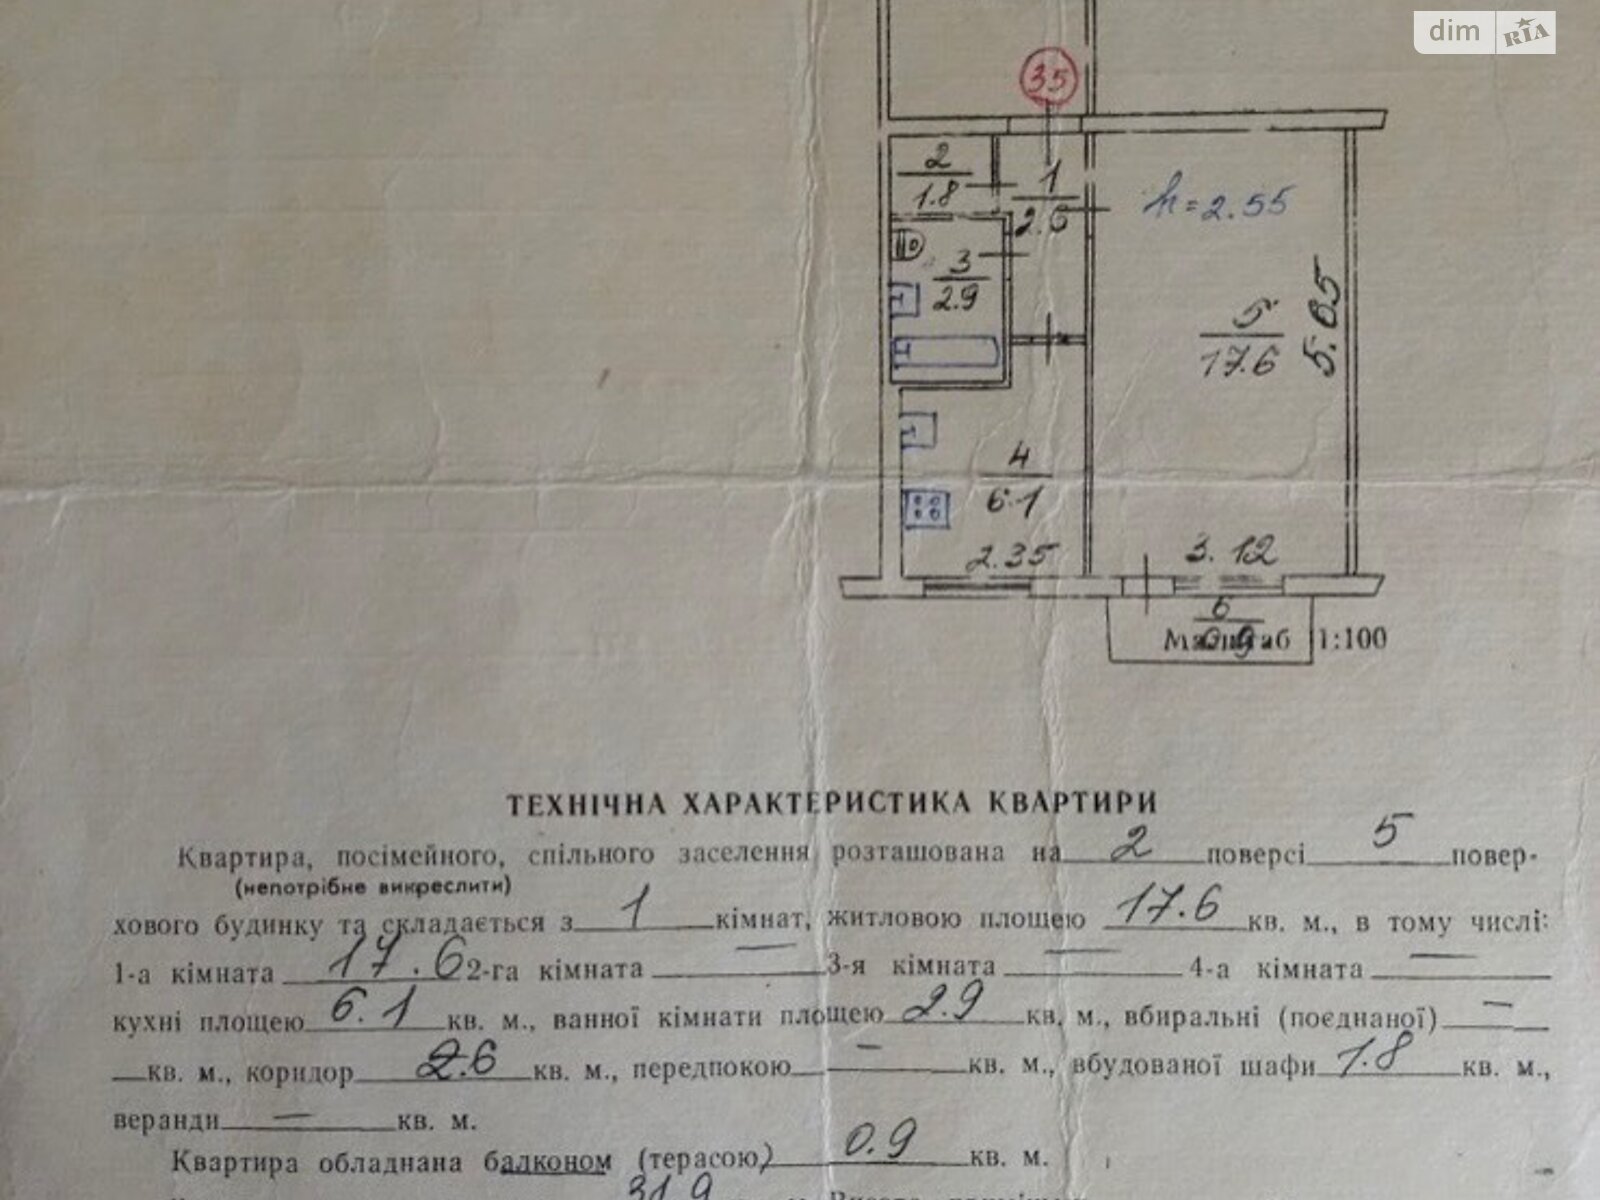 dim RIA
35
2
1.8
1
2.6
h=2.55
3
2.9
5
17.6
5.65
4
6.1
2.35
3.12
6
0.9
Масштаб 1:100
ТЕХНІЧНА ХАРАКТЕРИСТИКА КВАРТИРИ
Квартира, посімейного, спільного заселення розташована на 2 поверсі 5 повер-
(непотрібне викреслити)
хового будинку та складається з 1 кімнат, житловою площею 17.6 кв. м., в тому числі:
1-а кімната 17.6 2-га кімната — 3-я кімната — 4-а кімната —
кухні площею 6.1 кв. м., ванної кімнати площею 2.9 кв. м., вбиральні (поєднаної) —
кв. м., коридор 2.6 кв. м., передпокою — кв. м., вбудованої шафи 1.8 кв. м.,
веранди — кв. м.
Квартира обладнана балконом (терасою) 0.9 кв. м.
31.9